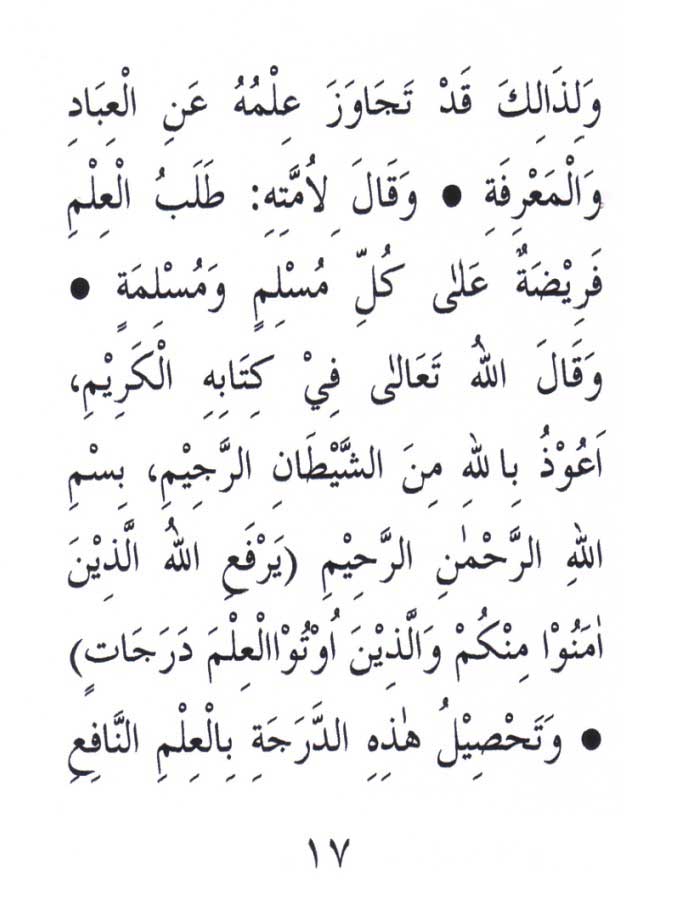 وَلِذَالِكَ قَدْ تَجَاوَزَ عِلْمُهُ عَنِ الْعِبَادِ
وَالْمَعْرِفَةِ ● وَقَالَ لِاُمَّتِهِ: طَلَبُ الْعِلْمِ
فَرِيْضَةٌ عَلٰى كُلِّ مُسْلِمٍ وَمُسْلِمَةٍ ●
وَقَالَ اللهُ تَعَالٰى فِيْ كِتَابِهِ الْكَرِيْمِ،
اَعُوْذُ بِاللهِ مِنَ الشَّيْطَانِ الرَّجِيْمِ، بِسْمِ
اللهِ الرَّحْمٰنِ الرَّحِيْمِ (يَرْفَعِ اللهُ الَّذِيْنَ
اٰمَنُوْا مِنْكُمْ وَالَّذِيْنَ اُوْتُوْاالْعِلْمَ دَرَجَاتٍ)
● وَتَحْصِيْلُ هٰذِهِ الدَّرَجَةِ بِالْعِلْمِ النَّافِعِ
١٧